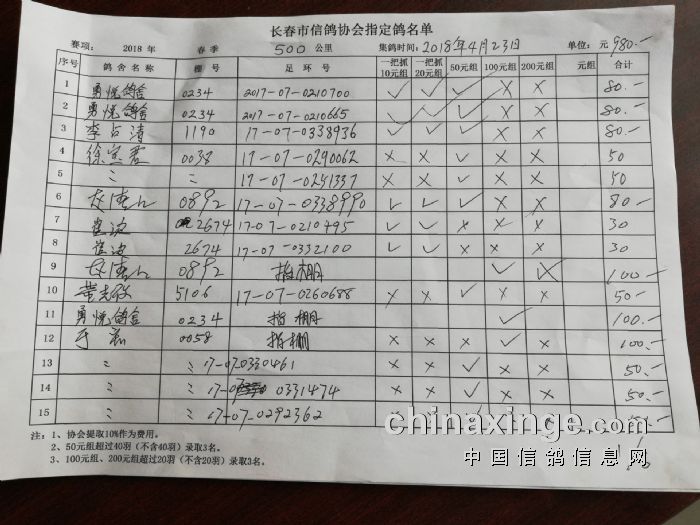 长春市信鸽协会指定鸽名单
赛项： 2018 年 春 季 500 公里 集鸽时间：2018年4月23日 单位：元 980.-
序号 鸽舍名称 棚号 足环号 一把抓10元组 一把抓20元组 50元组 100元组 200元组 元组 合计
1 勇悦鸽舍 0234 2017-07-0210700 ✓ ✓ ✓ × × 80.-
2 勇悦鸽舍 0234 2017-07-0210665 ✓ ✓ ✓ × × 80.-
3 李占涛 1190 17-07-0338936 ✓ ✓ ✓ × × 80.-
4 0038 17-07-0290062 × × ✓ × × 50
5 〃 〃 17-07-0251337 × × ✓ × × 50
6 0892 17-07-0338990 ✓ ✓ ✓ × × 80-
7 2674 17-07-0210495 ✓ ✓ × × × 30
8 2674 17-07-0332100 ✓ ✓ × × × 30
9 0892 指棚 ✓ × 100-
10 5106 17-07-0260688 × × ✓ × × 50-
11 勇悦鸽舍 0234 指棚 ✓ × 100.-
12 0058 指棚 × × × ✓ × 100.-
13 〃 〃 17-07-0330461 × × ✓ × × 50.-
14 〃 〃 17-07 0331474 × × ✓ × × 50.-
15 〃 〃 17-07-0292362
注：1、协会提取10%作为费用。
2、50元组超过40羽（不含40羽）录取3名。
3、100元组、200元组超过20羽（不含20羽）录取3名。
chinaxinge.com
中国信鸽信息网